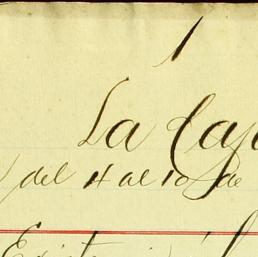 1
La Caj
del 4 al 10 de
Exist